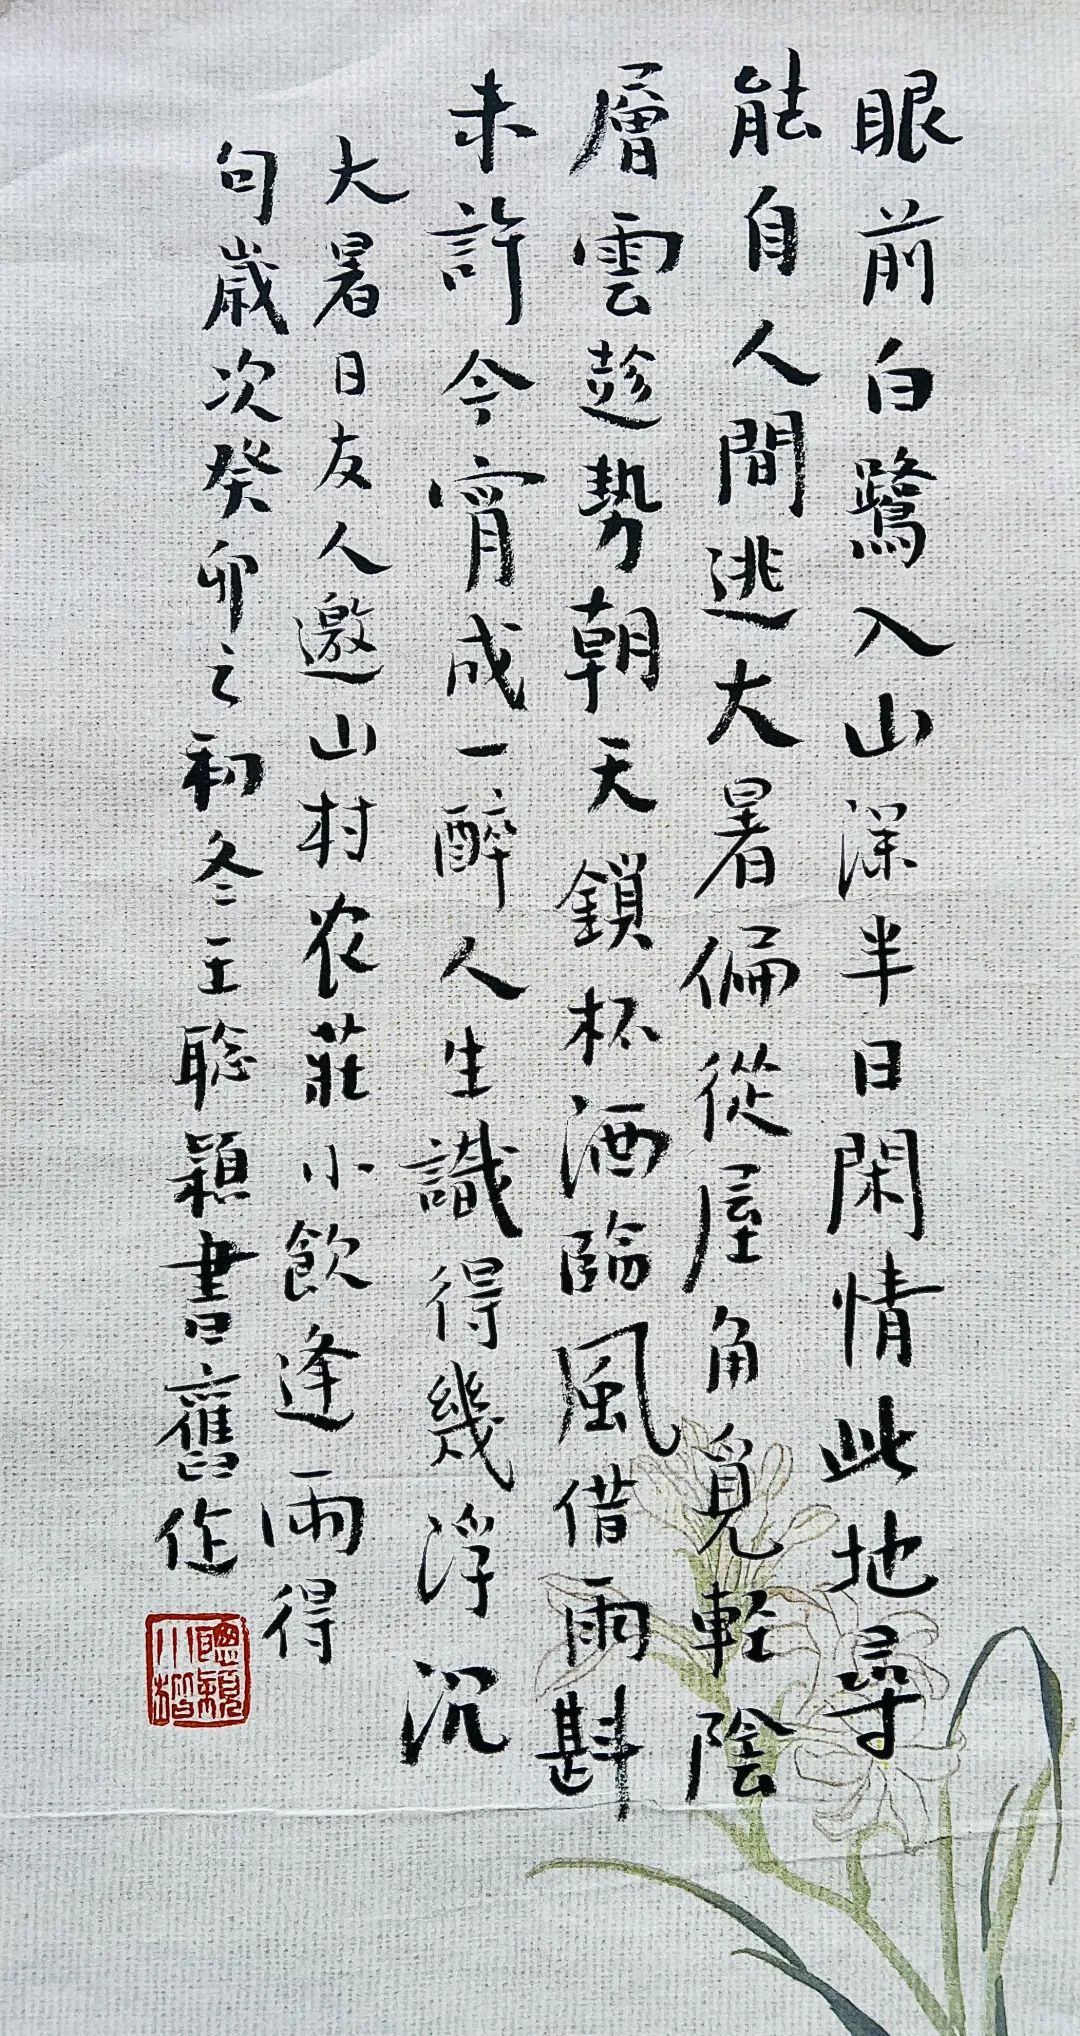 眼前白鷺入山深半日閑情此地尋
能自人間逃大暑偏從屋角覓輕陰
層雲趁勢朝天鎖杯酒臨風借雨斟
未許今宵成一醉人生識得幾浮沉
大暑日友人邀山村农莊小飲逢雨得
句歲次癸卯之初冬王聡穎書舊作